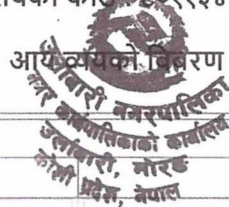 आय व्ययको बिबरण
उर्लाबारी नगरपालिका
नगर कार्यपालिकाको कार्यालय
उर्लाबारी, मोरङ
कोशी प्रदेश, नेपाल